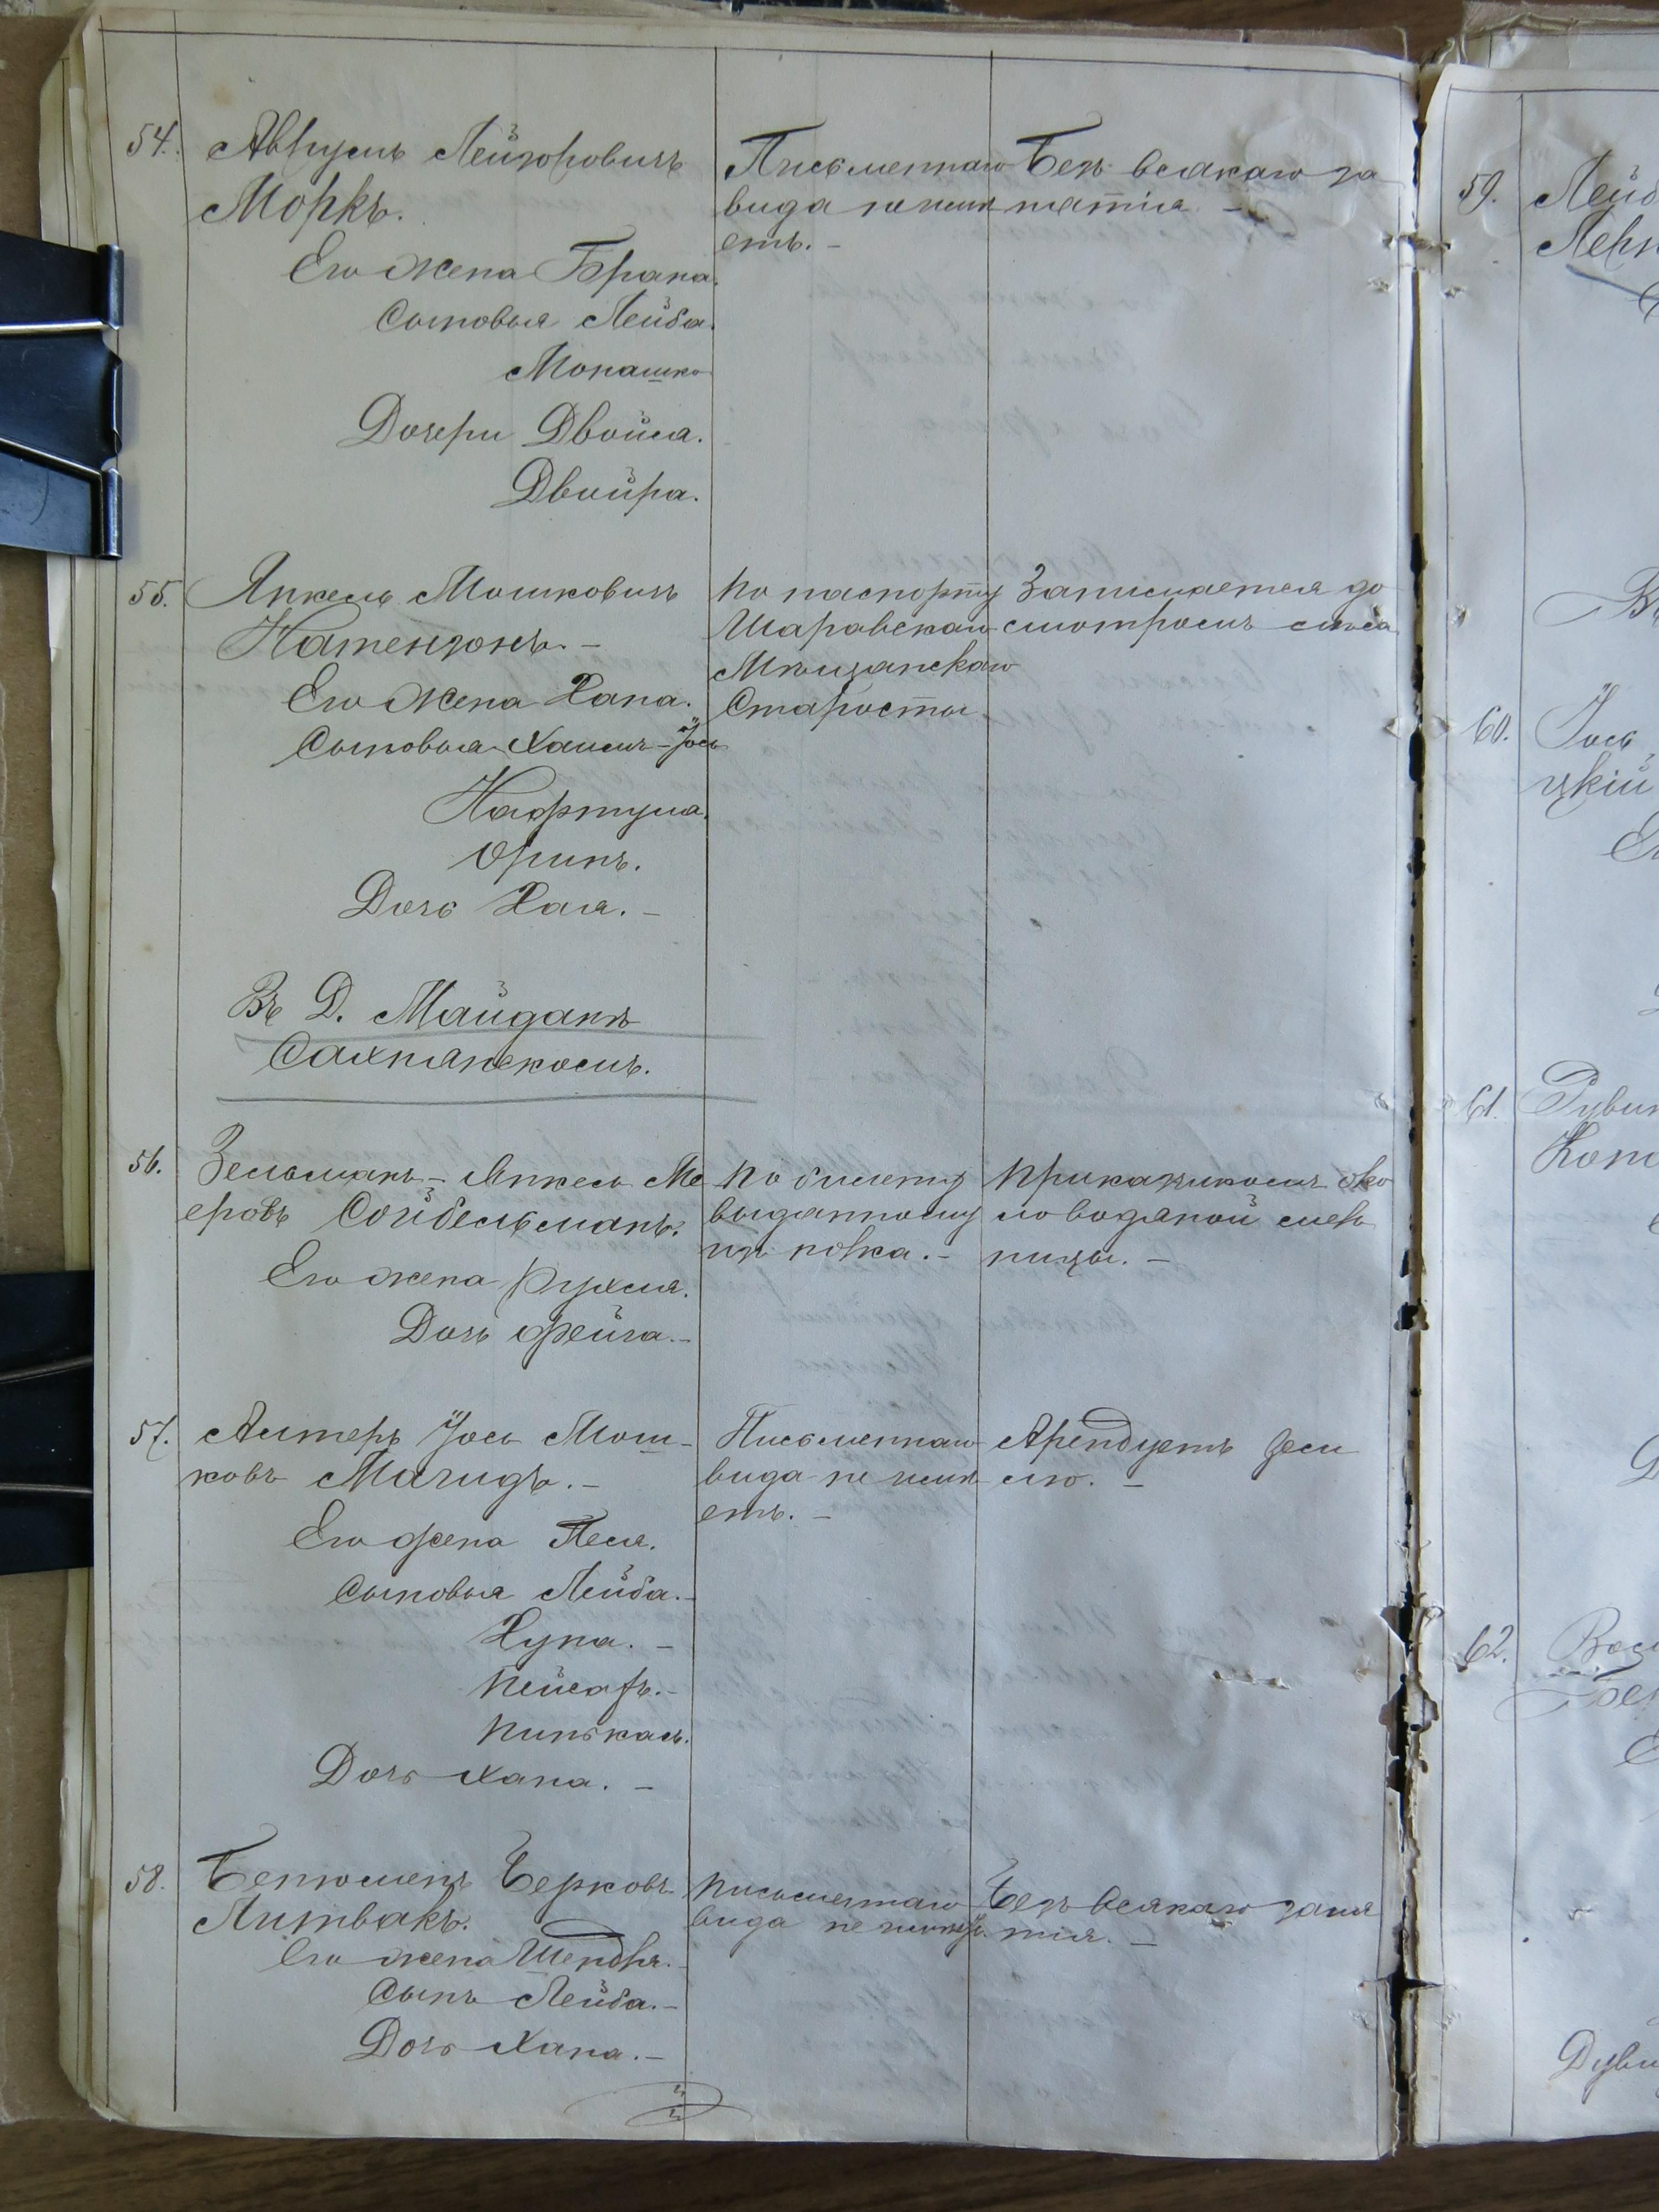 54. Аврумъ Лейзоровичъ
Моркъ.
Его жена Брана.
Сыновья Лейба.
Монашко
Дочери Двойса.
Двойра.
Письменнаго
вида не имѣ
етъ. –
Безъ всякаго за
нятія. –
55. Янкель Мошковичъ
Натензонъ. –
Его жена Хана.
Сыновья Хаимъ-Іось
Нафтула.
Орынъ.
Дочь Хая. –
По паспорту
Шаравскаго
Мѣщанскаго
Старосты
Занимается до
смотромъ лѣса
Въ Д. Майданѣ
Сахнянскомъ.
56. Зельманъ-Янкель Ме
еровъ Сойбельманъ.
Его жена Рухля.
Дочь Фейга. –
По билету
выданному
изъ полка. –
Приказчикомъ око
ло водяной мель
ницы. –
57. Алтеръ Іось Мош-
ковъ Магидъ. –
Его жена Песя.
Сыновья Лейба. –
Хуна. –
Пейсахъ. –
Пинькасъ.
Дочь Хана. –
Письменнаго
вида не имѣ
етъ. –
Арендуетъ зем
лю. –
58. Берковъ
Литвакъ.
Его жена Шендля. –
Сынъ Лейба. –
Дочь Хана. –
Письменнаго
вида не имѣетъ.
Безъ всякаго заня
тія. –
59. Лейб
60. Іось
цкій
61. Рувин
62.